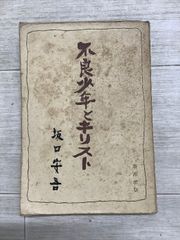 不良少年とキリスト
坂口安吾